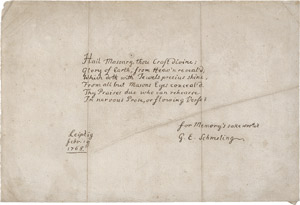 Hail Masonry, thou Craft Divine;
Glory of Earth, from Heav'n reveal'd;
Which doth with Jewels precious shine,
From all but Masons Eyes conceal'd
Thy Praises due who can rehearse
In nervous Prose, or flowing Verse?
Leipzig
Febr. 19
1765
for Memory's sake
G. E. Schmeling